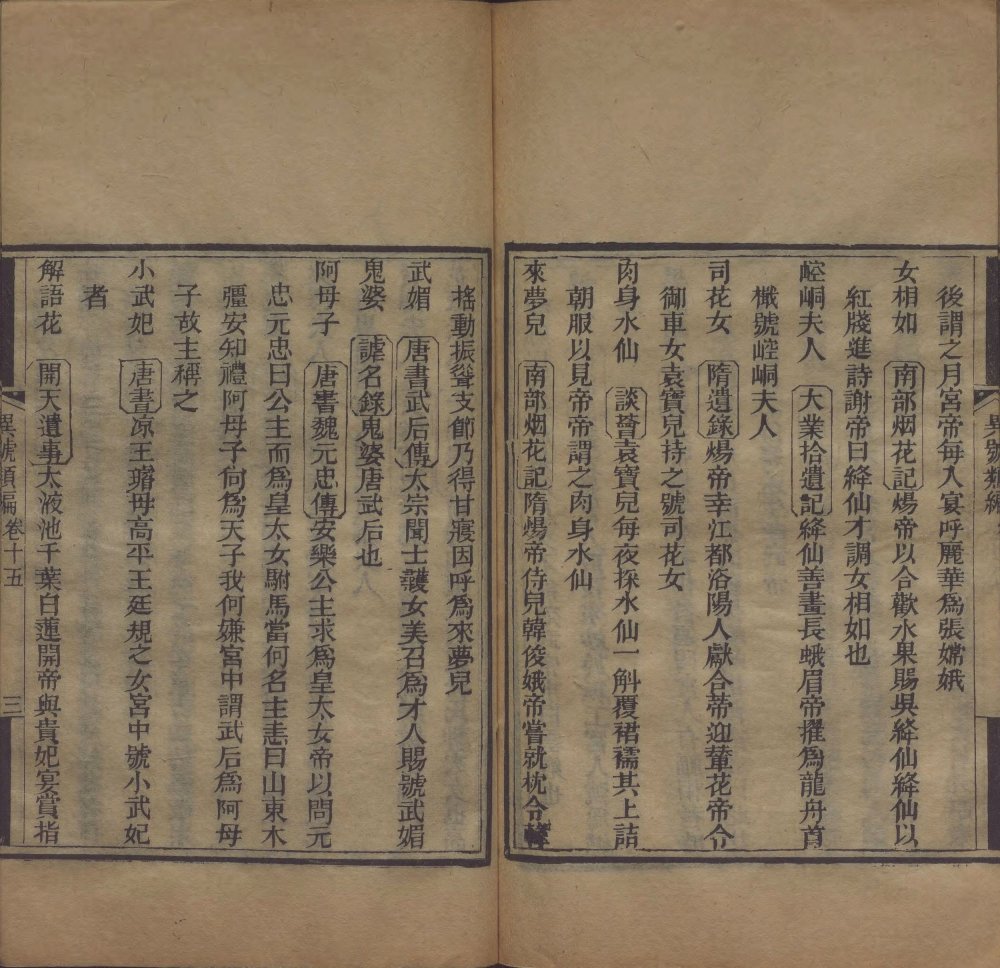 後謂之月宮帝每入宴呼麗華爲張嫦娥
女相如 南部烟花記煬帝以合歡水果賜吳絳仙絳仙以
紅牋進詩謝帝曰絳仙才調女相如也
崆峒夫人 大業拾遺記絳仙善畫長蛾眉帝擢爲龍舟首
檝號崆峒夫人
司花女 隋遺錄煬帝幸江都洛陽人獻合蒂迎輦花帝令
御車女袁寶兒持之號司花女
肉身水仙 談薈袁寶兒每夜探水仙一斛覆裙襦其上詰
朝服以見帝帝謂之肉身水仙
來夢兒 南部烟花記隋煬帝侍兒韓俊娥帝嘗就枕令韓
搖動振聳支節乃得甘寢因呼爲來夢兒
武媚 唐書武后傳太宗聞士彠女美召爲才人賜號武媚
鬼婆 謔名錄鬼婆唐武后也
阿母子 唐書魏元忠傳安樂公主求爲皇太女帝以問元
忠元忠曰公主而爲皇太女駙馬當何名主恚曰山東木
彊安知禮阿母子尙爲天子我何嫌宮中謂武后爲阿母
子故主稱之
小武妃 唐書凉王璿母高平王廷規之女宮中號小武妃
者
解語花 開天遺事太液池千葉白蓮開帝與貴妃宴賞指
異號類編 卷十五 三